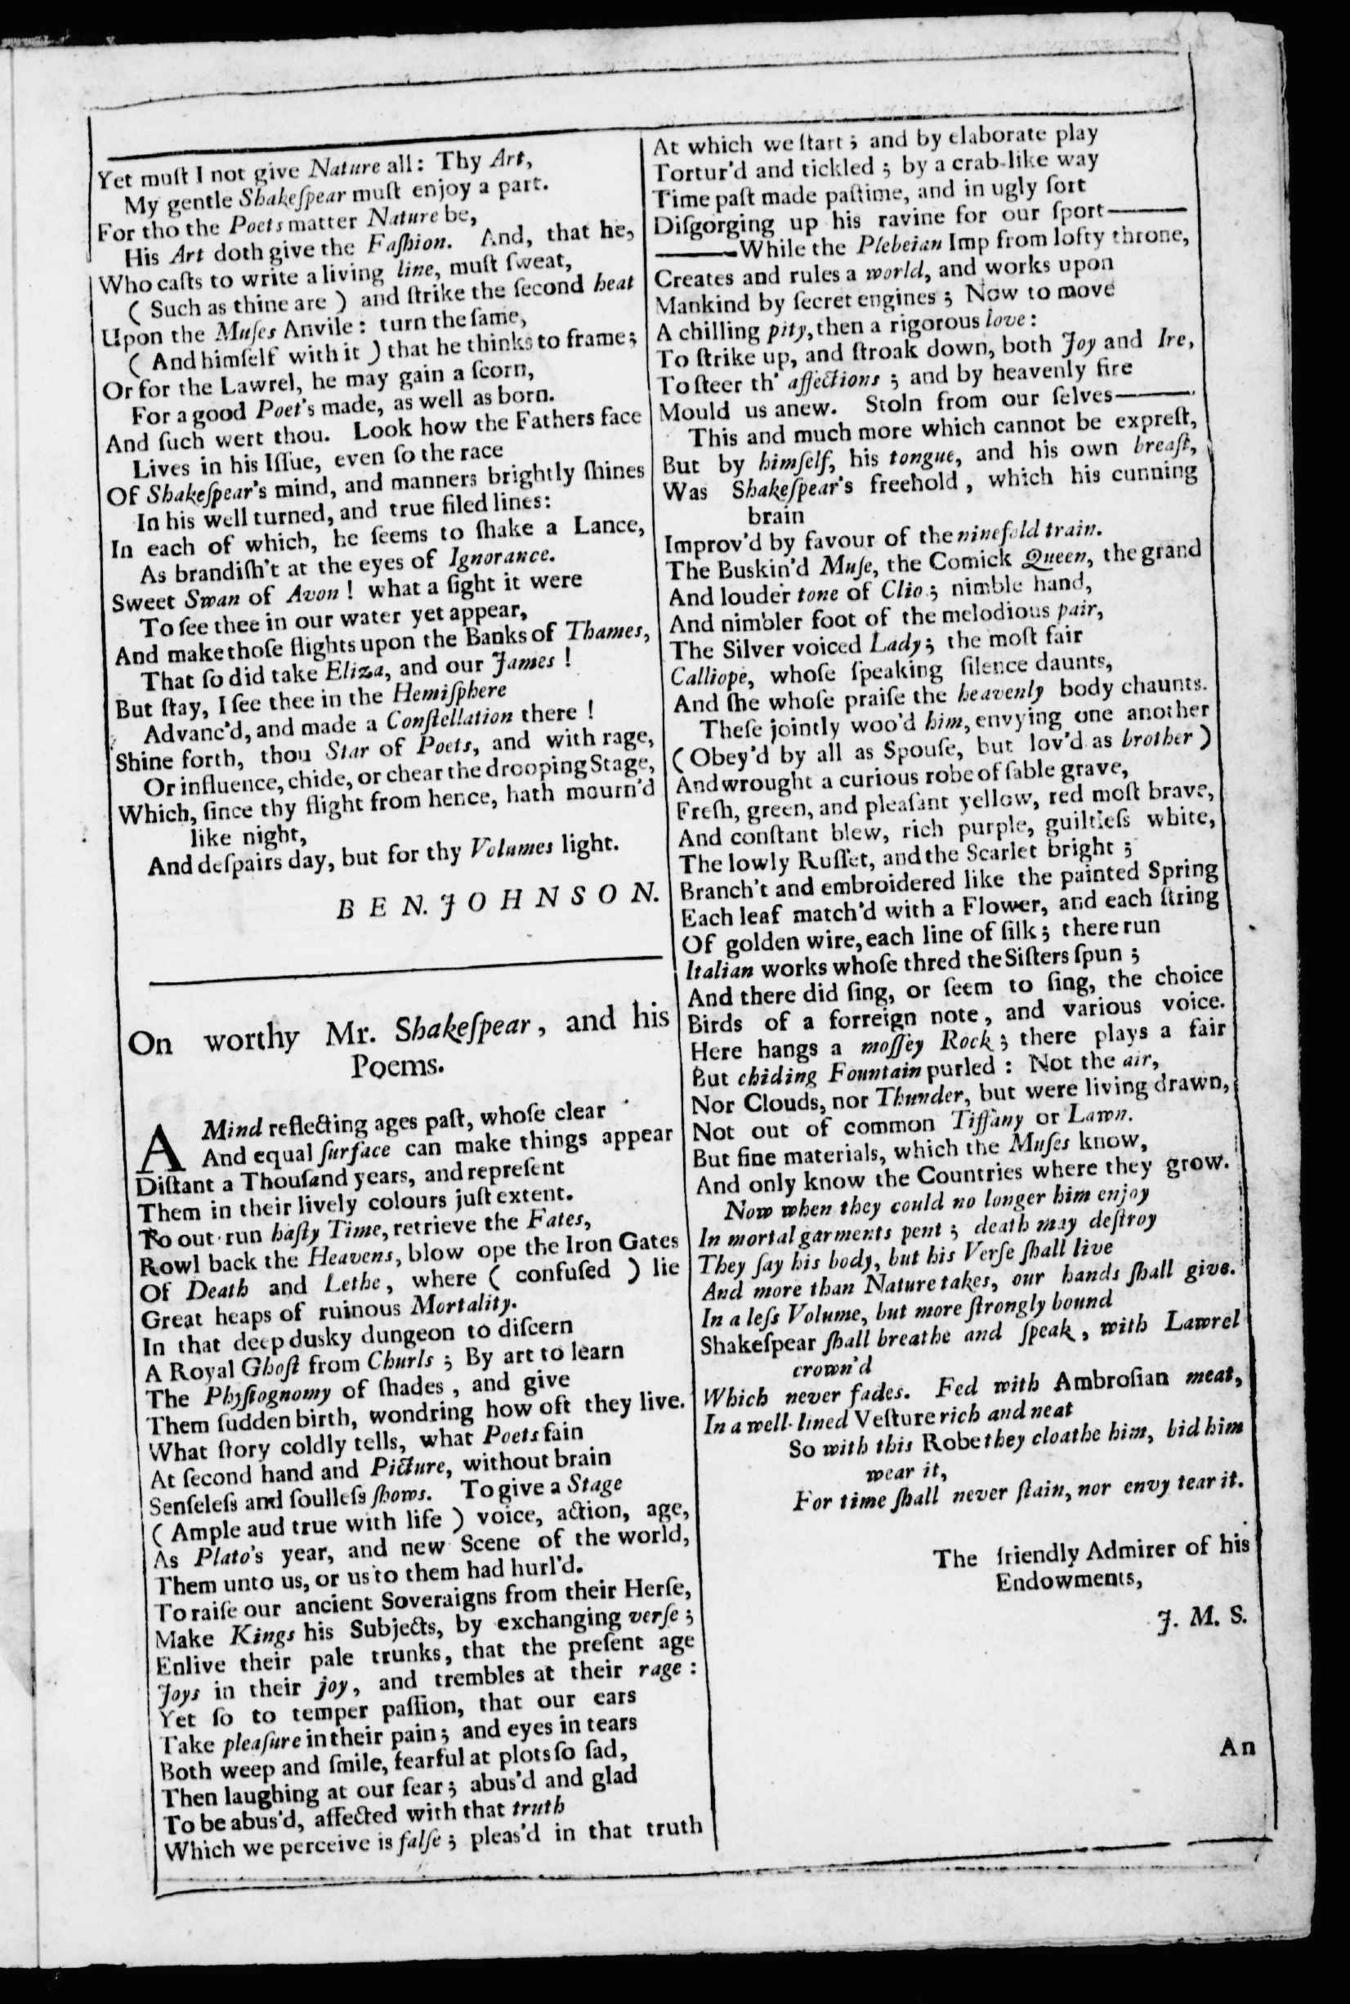 Yet muſt I not give Nature all: Thy Art,
My gentle Shakeſpear muſt enjoy a part.
For tho the Poets matter Nature be,
His Art doth give the Faſhion. And, that he,
Who caſts to write a living line, muſt ſweat,
( Such as thine are ) and ſtrike the ſecond heat
Upon the Muſes Anvile: turn the ſame,
( And himſelf with it ) that he thinks to frame;
Or for the Lawrel, he may gain a ſcorn,
For a good Poet's made, as well as born.
And ſuch wert thou. Look how the Fathers face
Lives in his Iſſue, even ſo the race
Of Shakeſpear's mind, and manners brightly ſhines
In his well turned, and true filed lines:
In each of which, he ſeems to ſhake a Lance,
As brandiſh't at the eyes of Ignorance.
Sweet Swan of Avon! what a ſight it were
To ſee thee in our water yet appear,
And make thoſe flights upon the Banks of Thames,
That ſo did take Eliza, and our James!
But ſtay, I ſee thee in the Hemiſphere
Advanc'd, and made a Conſtellation there!
Shine forth, thou Star of Poets, and with rage,
Or influence, chide, or chear the drooping Stage,
Which, ſince thy flight from hence, hath mourn'd
like night,
And deſpairs day, but for thy Volumes light.
BEN. JOHNSON.
On worthy Mr. Shakeſpear, and his
Poems.
A Mind reflecting ages paſt, whoſe clear
And equal ſurface can make things appear
Diſtant a Thouſand years, and repreſent
Them in their lively colours juſt extent.
To out-run haſty Time, retrieve the Fates,
Rowl back the Heavens, blow ope the Iron Gates
Of Death and Lethe, where ( confuſed ) lie
Great heaps of ruinous Mortality.
In that deep dusky dungeon to diſcern
A Royal Ghoſt from Churls; By art to learn
The Phyſiognomy of ſhades, and give
Them ſudden birth, wondring how oft they live.
What ſtory coldly tells, what Poets fain
At ſecond hand and Picture, without brain
Senſeleſs and ſoulleſs ſhows. To give a Stage
( Ample aud true with life ) voice, action, age,
As Plato's year, and new Scene of the world,
Them unto us, or us to them had hurl'd.
To raiſe our ancient Soveraigns from their Herſe,
Make Kings his Subjects, by exchanging verſe;
Enlive their pale trunks, that the preſent age
Joys in their joy, and trembles at their rage:
Yet ſo to temper paſſion, that our ears
Take pleaſure in their pain; and eyes in tears
Both weep and ſmile, fearful at plots ſo ſad,
Then laughing at our fear; abus'd and glad
To be abus'd, affected with that truth
Which we perceive is falſe; pleas'd in that truth
At which we ſtart; and by elaborate play
Tortur'd and tickled; by a crab-like way
Time paſt made paſtime, and in ugly ſort
Diſgorging up his ravine for our ſport——
——While the Plebeian Imp from lofty throne,
Creates and rules a world, and works upon
Mankind by ſecret engines; Now to move
A chilling pity, then a rigorous love:
To ſtrike up, and ſtroak down, both Joy and Ire,
To ſteer th' affections; and by heavenly fire
Mould us anew. Stoln from our ſelves——
This and much more which cannot be expreſt,
But by himſelf, his tongue, and his own breaſt,
Was Shakeſpear's freehold, which his cunning
brain
Improv'd by favour of the ninefold train.
The Buskin'd Muſe, the Comick Queen, the grand
And louder tone of Clio; nimble hand,
And nimbler foot of the melodious pair,
The Silver voiced Lady; the moſt fair
Calliope, whoſe ſpeaking ſilence daunts,
And ſhe whoſe praiſe the heavenly body chaunts.
Theſe jointly woo'd him, envying one another
( Obey'd by all as Spouſe, but lov'd as brother )
And wrought a curious robe of ſable grave,
Freſh, green, and pleaſant yellow, red moſt brave,
And conſtant blew, rich purple, guiltleſs white,
The lowly Ruſſet, and the Scarlet bright;
Branch't and embroidered like the painted Spring
Each leaf match'd with a Flower, and each ſtring
Of golden wire, each line of ſilk; there run
Italian works whoſe thred the Siſters ſpun;
And there did ſing, or ſeem to ſing, the choice
Birds of a forreign note, and various voice.
Here hangs a moſſey Rock; there plays a fair
But chiding Fountain purled: Not the air,
Nor Clouds, nor Thunder, but were living drawn,
Not out of common Tiffany or Lawn.
But fine materials, which the Muſes know,
And only know the Countries where they grow.
Now when they could no longer him enjoy
In mortal garments pent; death may deſtroy
They ſay his body, but his Verſe ſhall live
And more than Nature takes, our hands ſhall give.
In a leſs Volume, but more ſtrongly bound
Shakeſpear ſhall breathe and ſpeak, with Lawrel
crown'd
Which never fades. Fed with Ambroſian meat,
In a well-lined Veſture rich and neat
So with this Robe they cloathe him, bid him
wear it,
For time ſhall never ſtain, nor envy tear it.
The friendly Admirer of his
Endowments,
J. M. S.
An